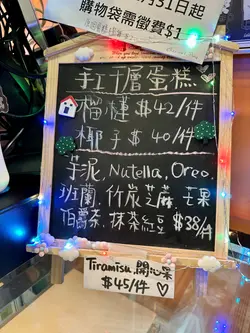 月31日起
購物袋需徵費$1
手工千層蛋糕
榴槤 $42/件
椰子 $40/件
芋泥、Nutella、Oreo、
班蘭、竹炭芝蔴、芒果
伯爵茶、抹茶紅豆 $38/件
Tiramisu、開心果
$45/件